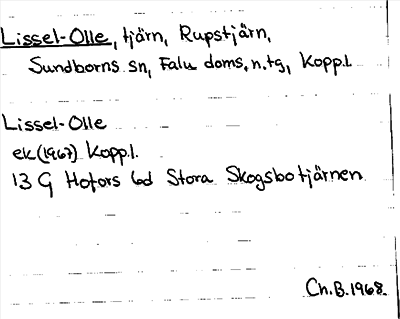 Lissel-Olle, tjärn, Rupstjärn,
Sundborns sn, Falu doms.n.tg, Kopp.l.
Lissel-Olle
ek(1967) Kopp.l.
13 G Hofors 6d Stora Skogsbotjärnen
Ch.B.1968.